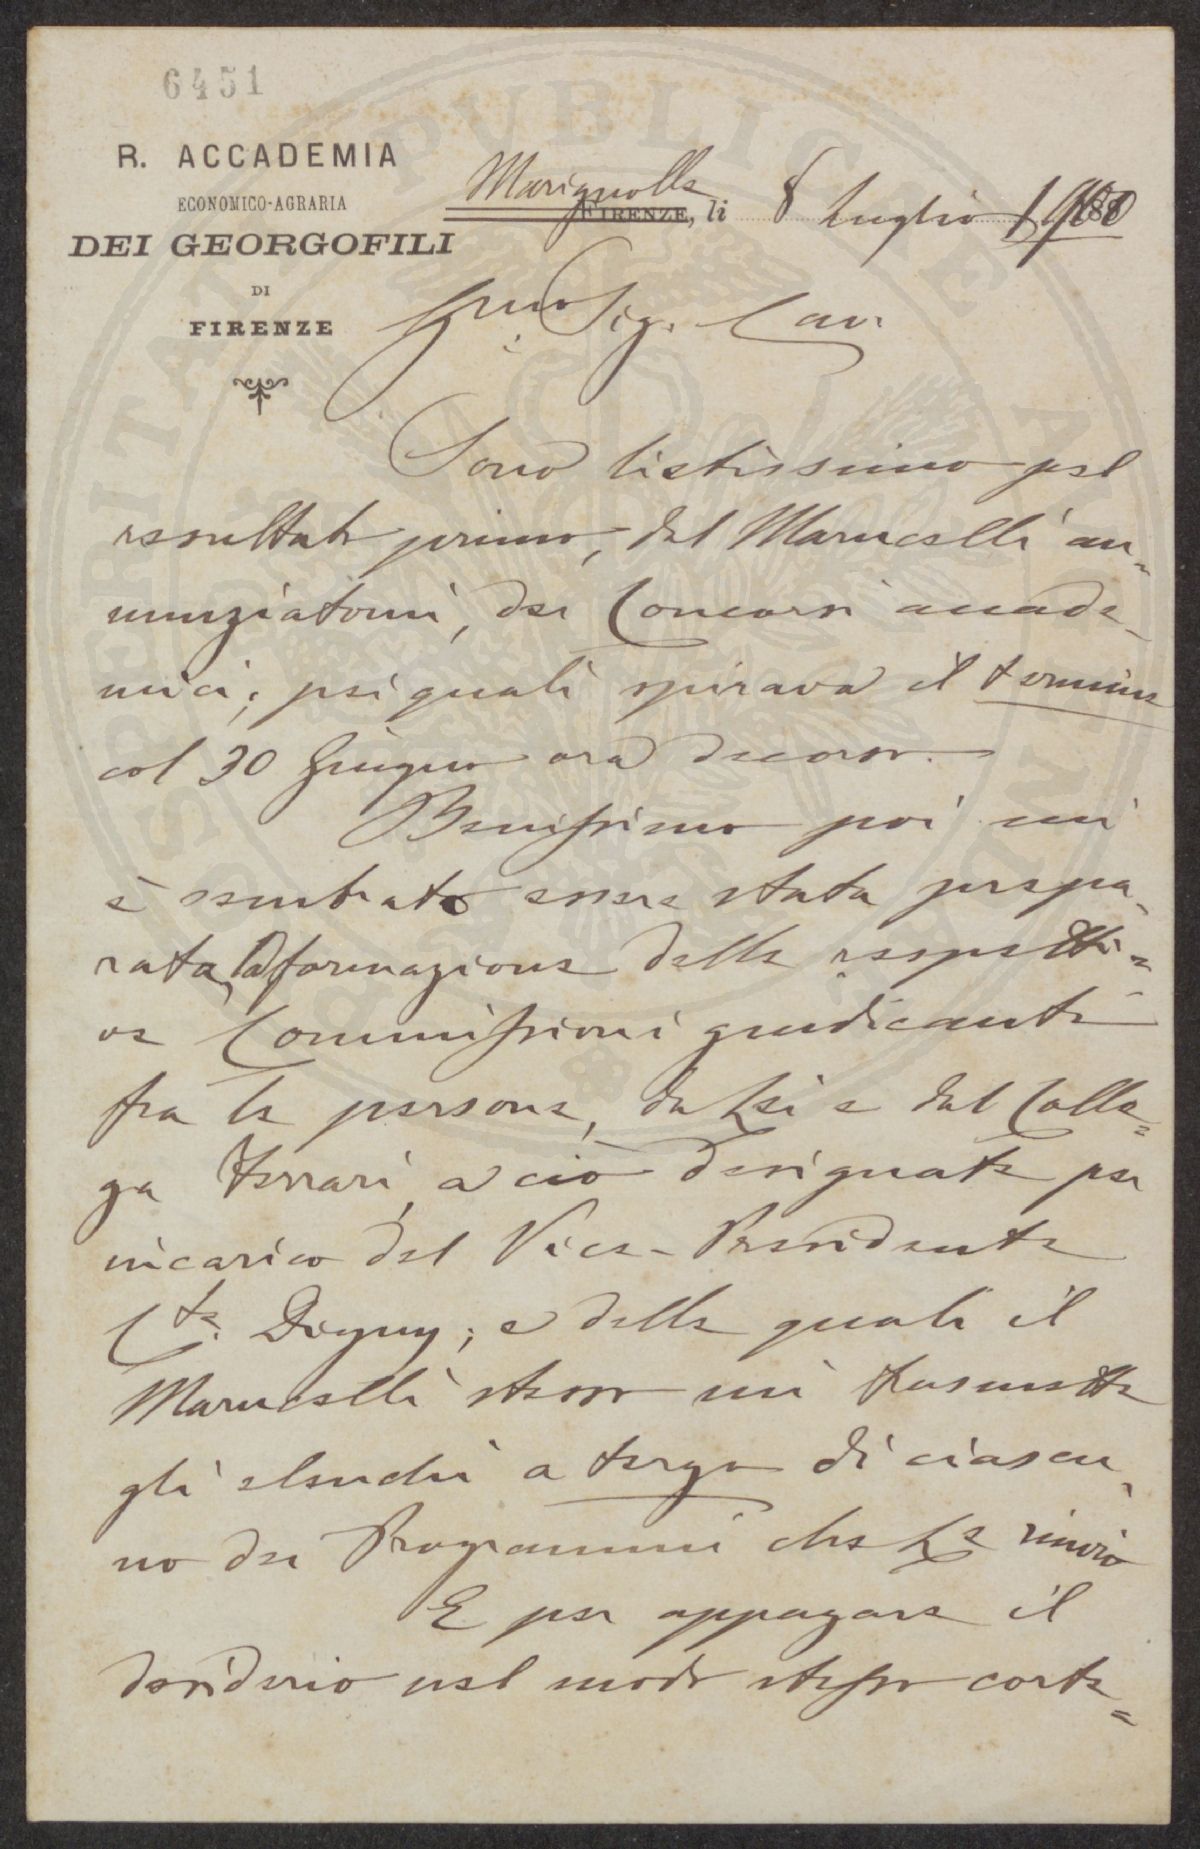 6451
R. ACCADEMIA
ECONOMICO-AGRARIA
DEI GEORGOFILI
DI
FIRENZE
Marignolle
FIRENZE, li 8 Luglio 1900
Sig. Cav.
Sono lietissimo pel
resultato primo, dal Marucelli an=
nunziatomi, dei Concorsi accade-
mici, pei quali spirava il termine
col 30 Giugno ora decorso.
Benissimo poi mi
è sembrato essere stata prepa-
rata, la formazione delle respetti=
ve Commissioni giudicanti
fra le persone, da Lei e dal Colle=
ga Ferrari, a ciò designate per
incarico del Vice-Presidente
Cte. Digny; e delle quali il
Marucelli stesso mi trasmette
gli elenchi a tergo di ciascu-
no dei Programmi che Le rinvio
E per appagare il
desiderio nel modo stesso corte=
PUBLICAE
PROSPERITATI AUGENDAE